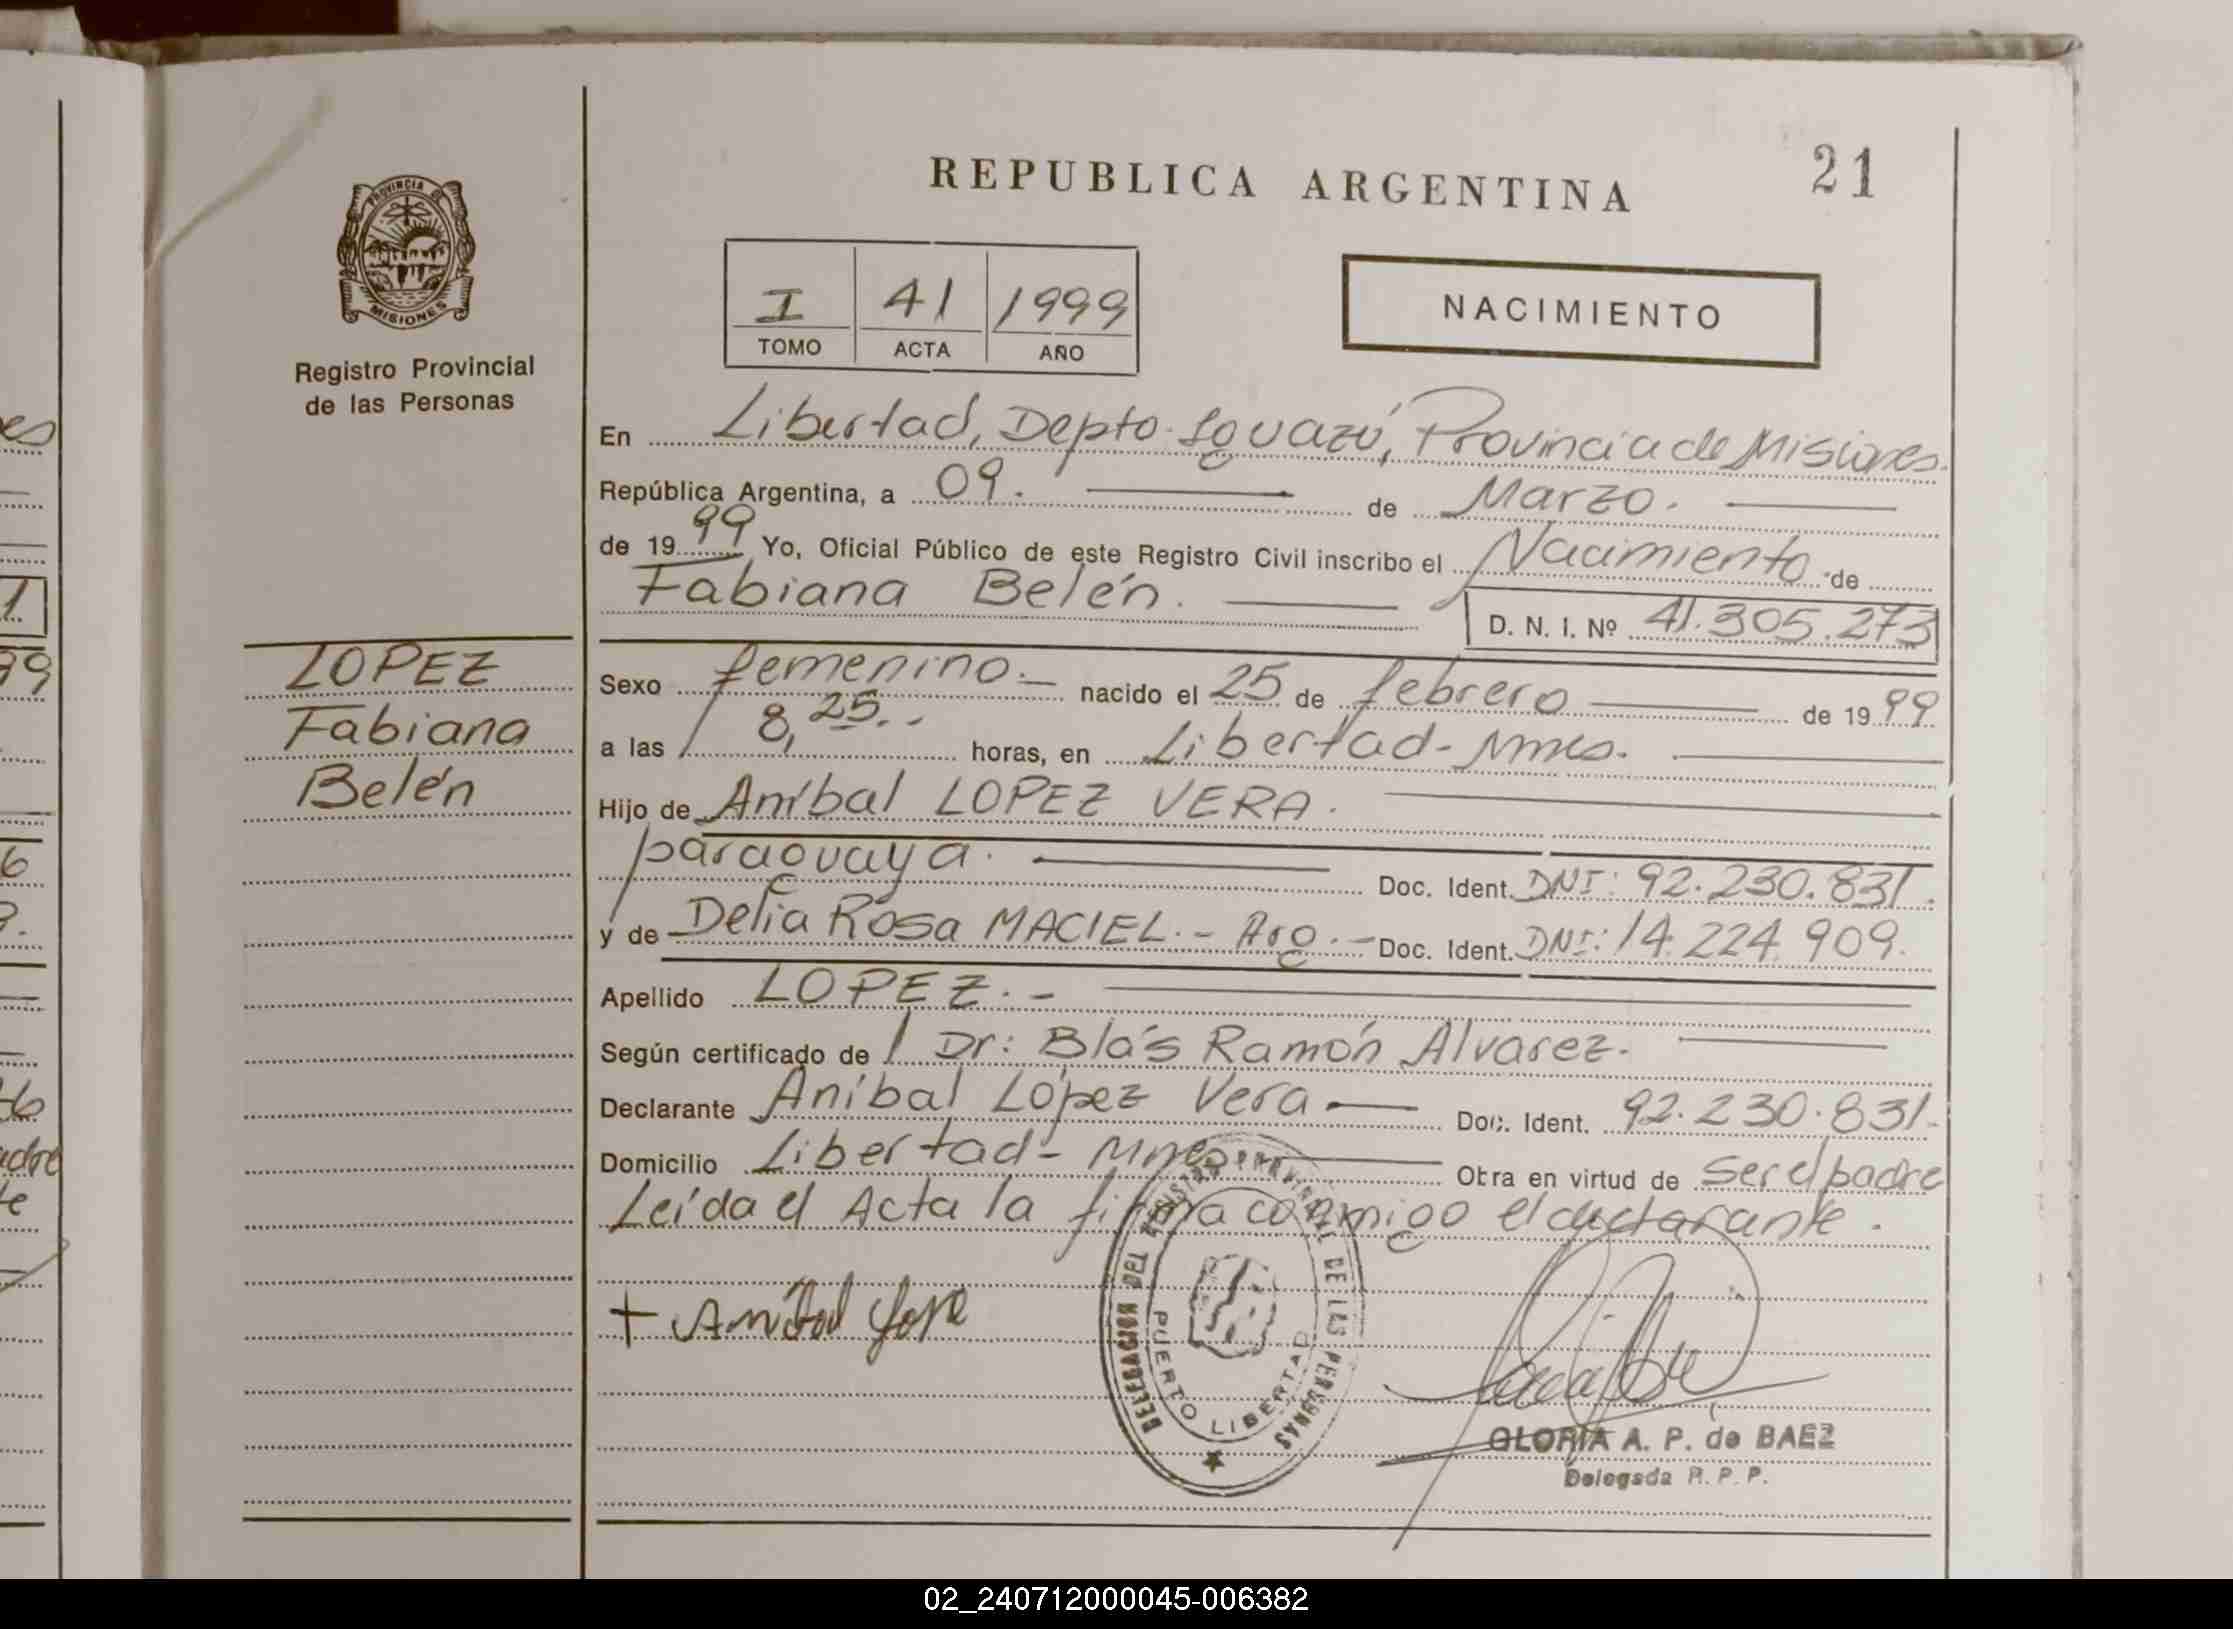 REPUBLICA ARGENTINA
21
PROVINCIA D
MISIONES
Registro Provincial
de las Personas
I 41 1999
TOMO ACTA AÑO
NACIMIENTO
En Libertad, Depto. Iguazú, Provincia de Misiones.
República Argentina, a 09. de Marzo.
de 1999 Yo, Oficial Público de este Registro Civil inscribo el Nacimiento de
Fabiana Belén.
D. N. I. Nº 41.305.273
LOPEZ
Fabiana
Belén
Sexo femenino.- nacido el 25 de febrero de 1999
a las 8,25.- horas, en Libertad- Mnes.
Hijo de Aníbal LOPEZ VERA.
paraguaya. Doc. Ident. DNI: 92.230.831.
y de Delia Rosa MACIEL.- Arg.- Doc. Ident. DNI: 14.224.909.
Apellido LOPEZ.-
Según certificado de Dr: Blás Ramón Alvarez.
Declarante Aníbal López Vera Doc. Ident. 92.230.831.
Domicilio Libertad- Mnes Obra en virtud de ser el padre
Leída el Acta la firma conmigo el declarante.
+ Aníbal Lope
DELEGACION DEL REGISTRO PROVINCIAL DE LAS PERSONAS
PUERTO LIBERTAD
GLORIA A. P. de BAEZ
Delegada R. P. P.
es
1
99
6
adre
te
02_240712000045-006382